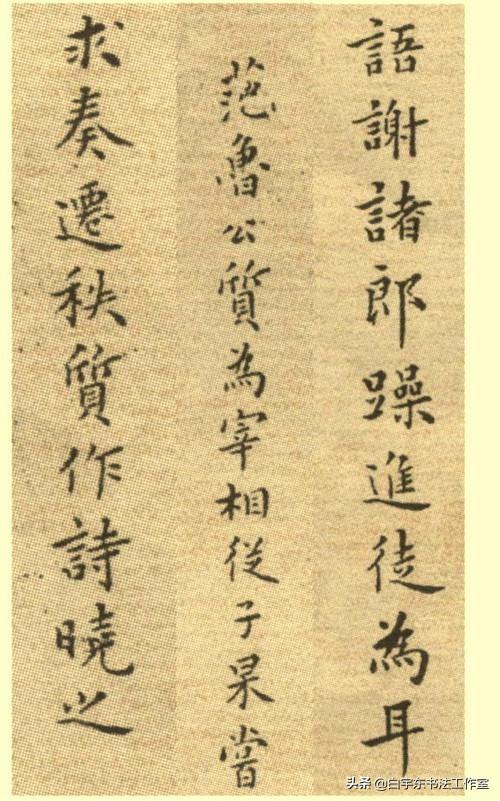 語謝諸郎躁進徒為耳
范魯公質為宰相從子杲嘗
求奏遷秩質作詩曉之
头条 @白宇东书法工作室